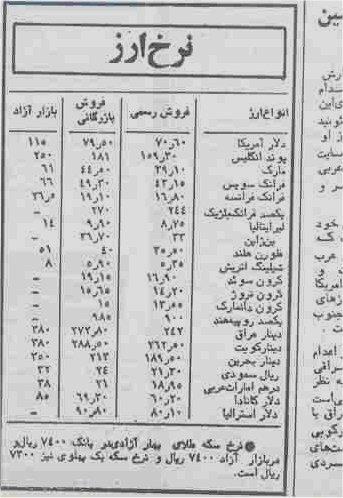 نرخ ارز
انواع ارز فروش رسمی فروش بازرگانی بازار آزاد
دلار آمریکا ۷۰ر۶۰ ۷۹ر۵۰ ۱۱۵
پوند انگلیس ۱۵۹ر۳۰ ۱۸۱ ۲۵۰
مارک ۳۹ر۱۰ ۴۴ر۵۰ ۶۱
فرانک سویس ۴۳ر۱۵ ۴۹ر۳۰ ۶۶
فرانک فرانسه ۱۶ر۸۰ ۱۹ر۱۰
یکصد فرانک بلژیک ۲۴۴ ۲۷۰ –
لیر ایتالیا ۸ر۷۵ ۹ر۹۰ ۱۴
ین ژاپن ۳۳ ۳۶ر۷۰ –
فلورن هلند ۳۵ر۵۰ ۴۰ ۵۱
شیلینگ اتریش ۵ر۳۵ ۵ر۹۰ ۸
کرون سوئد ۱۶ر۹۰ ۱۹ر۱۵ –
کرون نروژ ۱۴ر۲۰ ۱۵ر۶۵ –
کرون دانمارک ۱۳ر۵۵ ۱۵ –
یکصد روپیه هند ۹۰۰ ۹۸۵ –
دینار عراق ۲۴۲ ۲۷۲ر۸۰ ۳۸۰
دینار کویت ۲۶۲ر۵۰ ۲۸۸ر۵۰ ۳۸۰
دینار بحرین ۱۸۹ر۵۰ ۲۱۳ ۲۵۰
ریال سعودی ۲۱ر۳۰ ۲۴ ۳۲
درهم امارات عربی ۱۸ر۹۵ ۲۱ ۳۸
دلار کانادا ۶۰ر۲۰ ۶۹ر۳۰ ۸۵
دلار استرالیا ۸۰ر۱۰ ۹۰ر۸۰ –
● نرخ سکه طلای بهار آزادی در بانک ۷۴۰۰ ریال و
در بازار آزاد ۷۴۰۰ ریال و نرخ سکه یک پهلوی نیز ۷۳۰۰
ریال است.